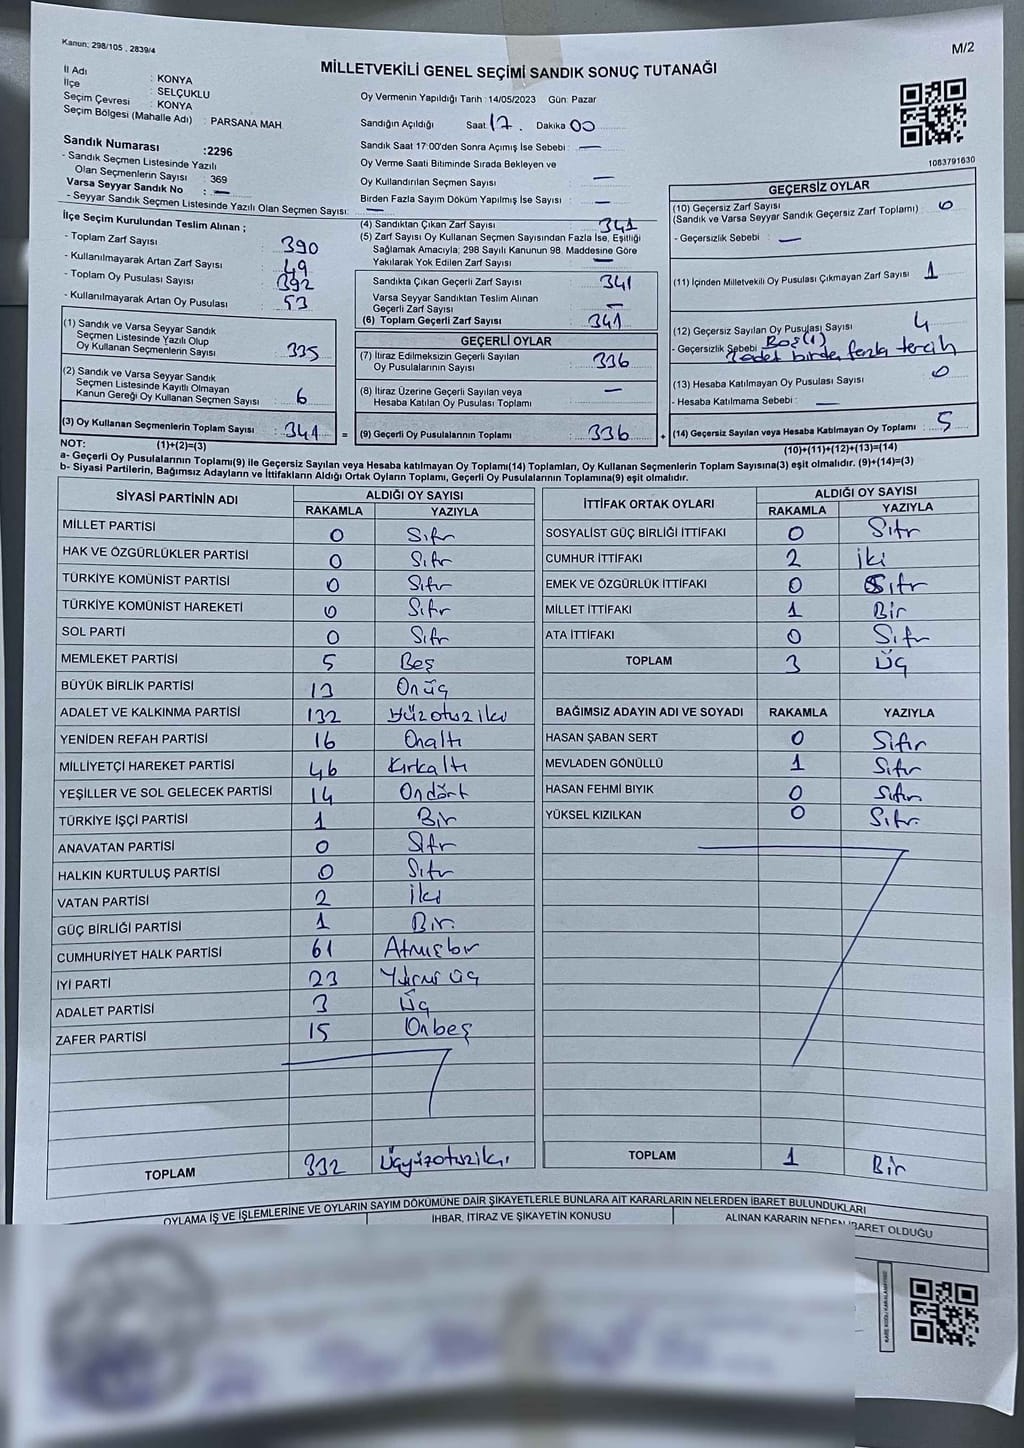 Kanun; 298/105 , 2839/4
M/2
MİLLETVEKİLİ GENEL SEÇİMİ SANDIK SONUÇ TUTANAĞI
İl Adı : KONYA
İlçe : SELÇUKLU
Seçim Çevresi : KONYA
Seçim Bölgesi (Mahalle Adı) : PARSANA MAH.
Sandık Numarası :2296
- Sandık Seçmen Listesinde Yazılı
Olan Seçmenlerin Sayısı : 369
Varsa Seyyar Sandık No : —
- Seyyar Sandık Seçmen Listesinde Yazılı Olan Seçmen Sayısı: —
Oy Vermenin Yapıldığı Tarih : 14/05/2023 Gün: Pazar
Sandığın Açıldığı Saat: 17 . Dakika 00
Sandık Saat 17:00'den Sonra Açımış İse Sebebi : —
Oy Verme Saati Bitiminde Sırada Bekleyen ve
Oy Kullandırılan Seçmen Sayısı : —
Birden Fazla Sayım Döküm Yapılmış İse Sayısı : —
1063791630
İlçe Seçim Kurulundan Teslim Alınan ;
- Toplam Zarf Sayısı : 390
- Kullanılmayarak Artan Zarf Sayısı : 49
- Toplam Oy Pusulası Sayısı : 392
- Kullanılmayarak Artan Oy Pusulası : 53
(1) Sandık ve Varsa Seyyar Sandık
Seçmen Listesinde Yazılı Olup
Oy Kullanan Seçmenlerin Sayısı : 335
(2) Sandık ve Varsa Seyyar Sandık
Seçmen Listesinde Kayıtlı Olmayan
Kanun Gereği Oy Kullanan Seçmen Sayısı : 6
(3) Oy Kullanan Seçmenlerin Toplam Sayısı : 341 =
(4) Sandıktan Çıkan Zarf Sayısı : 341
(5) Zarf Sayısı Oy Kullanan Seçmen Sayısından Fazla İse, Eşitliği
Sağlamak Amacıyla; 298 Sayılı Kanunun 98. Maddesine Göre
Yakılarak Yok Edilen Zarf Sayısı : —
Sandıkta Çıkan Geçerli Zarf Sayısı : 341
Varsa Seyyar Sandıktan Teslim Alınan
Geçerli Zarf Sayısı : —
(6) Toplam Geçerli Zarf Sayısı : 341
GEÇERLİ OYLAR
(7) İtiraz Edilmeksizin Geçerli Sayılan
Oy Pusulalarının Sayısı : 336
(8) İtiraz Üzerine Geçerli Sayılan veya
Hesaba Katılan Oy Pusulası Toplamı : —
(9) Geçerli Oy Pusulalarının Toplamı : 336 +
GEÇERSİZ OYLAR
(10) Geçersiz Zarf Sayısı
(Sandık ve Varsa Seyyar Sandık Geçersiz Zarf Toplamı) : 0
- Geçersizlik Sebebi : —
(11) İçinden Milletvekili Oy Pusulası Çıkmayan Zarf Sayısı : 1
(12) Geçersiz Sayılan Oy Pusulası Sayısı : 4
- Geçersizlik Sebebi : Boş(1)
adet birden fazla tercih
(13) Hesaba Katılmayan Oy Pusulası Sayısı : 0
- Hesaba Katılmama Sebebi : —
(14) Geçersiz Sayılan veya Hesaba Katılmayan Oy Toplamı : 5
(10)+(11)+(12)+(13)=(14)
NOT: (1)+(2)=(3)
a- Geçerli Oy Pusulalarının Toplamı(9) ile Geçersiz Sayılan veya Hesaba katılmayan Oy Toplamı(14) Toplamları, Oy Kullanan Seçmenlerin Toplam Sayısına(3) eşit olmalıdır. (9)+(14)=(3)
b- Siyasi Partilerin, Bağımsız Adayların ve İttifakların Aldığı Ortak Oyların Toplamı, Geçerli Oy Pusulalarının Toplamına(9) eşit olmalıdır.
SİYASİ PARTİNİN ADI ALDIĞI OY SAYISI
RAKAMLA YAZIYLA
MİLLET PARTİSİ 0 Sıfır
HAK VE ÖZGÜRLÜKLER PARTİSİ 0 Sıfır
TÜRKİYE KOMÜNİST PARTİSİ 0 Sıfır
TÜRKİYE KOMÜNİST HAREKETİ 0 Sıfır
SOL PARTİ 0 Sıfır
MEMLEKET PARTİSİ 5 Beş
BÜYÜK BİRLİK PARTİSİ 13 Onüç
ADALET VE KALKINMA PARTİSİ 132 Yüzotuziki
YENİDEN REFAH PARTİSİ 16 Onaltı
MİLLİYETÇİ HAREKET PARTİSİ 46 Kırkaltı
YEŞİLLER VE SOL GELECEK PARTİSİ 14 Ondört
TÜRKİYE İŞÇİ PARTİSİ 1 Bir
ANAVATAN PARTİSİ 0 Sıfır
HALKIN KURTULUŞ PARTİSİ 0 Sıfır
VATAN PARTİSİ 2 İki
GÜÇ BİRLİĞİ PARTİSİ 1 Bir.
CUMHURİYET HALK PARTİSİ 61 Atmışbir
İYİ PARTİ 23 Yirmi üç
ADALET PARTİSİ 3 Üç
ZAFER PARTİSİ 15 Onbeş
TOPLAM 332 Üçyüzotuziki
İTTİFAK ORTAK OYLARI ALDIĞI OY SAYISI
RAKAMLA YAZIYLA
SOSYALİST GÜÇ BİRLİĞİ İTTİFAKI 0 Sıfır
CUMHUR İTTİFAKI 2 İki
EMEK VE ÖZGÜRLÜK İTTİFAKI 0 Sıfır
MİLLET İTTİFAKI 1 Bir
ATA İTTİFAKI 0 Sıfır
TOPLAM 3 Üç
BAĞIMSIZ ADAYIN ADI VE SOYADI RAKAMLA YAZIYLA
HASAN ŞABAN SERT 0 Sıfır
MEVLADEN GÖNÜLLÜ 1 Sıfır
HASAN FEHMİ BIYIK 0 Sıfır
YÜKSEL KIZILKAN 0 Sıfır.
TOPLAM 1 Bir
OYLAMA İŞ VE İŞLEMLERİNE VE OYLARIN SAYIM DÖKÜMÜNE DAİR ŞİKAYETLERLE BUNLARA AİT KARARLARIN NELERDEN İBARET BULUNDUKLARI
İHBAR, İTİRAZ VE ŞİKAYETİN KONUSU
ALINAN KARARIN NEDEN İBARET OLDUĞU